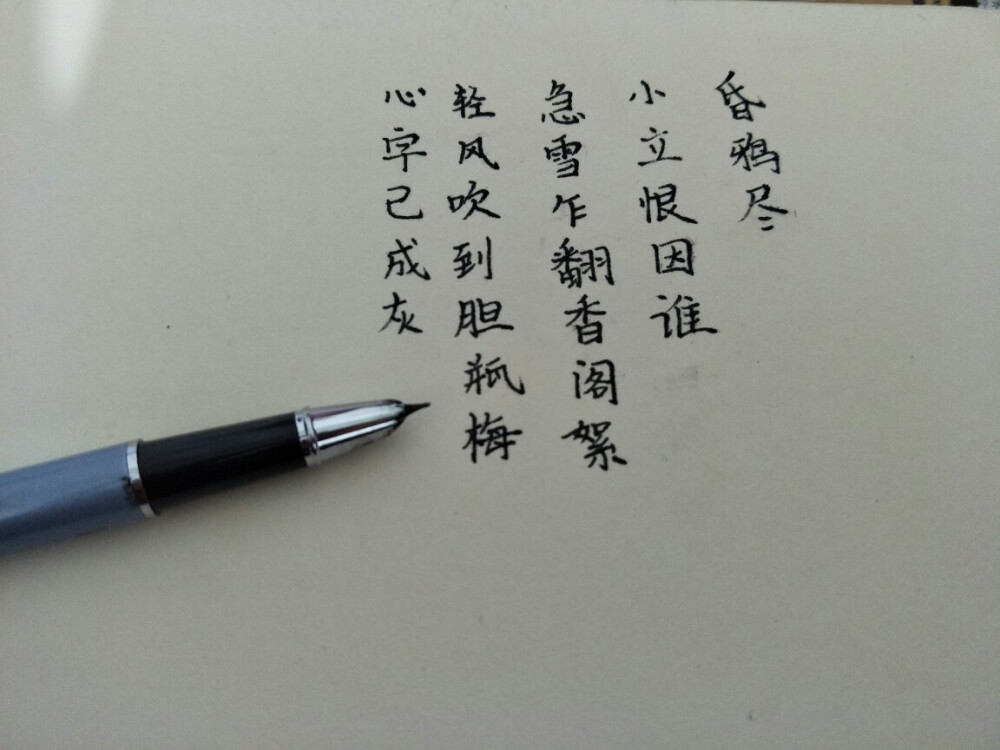 昏鸦尽
小立恨因谁
急雪乍翻香阁絮
轻风吹到胆瓶梅
心字已成灰